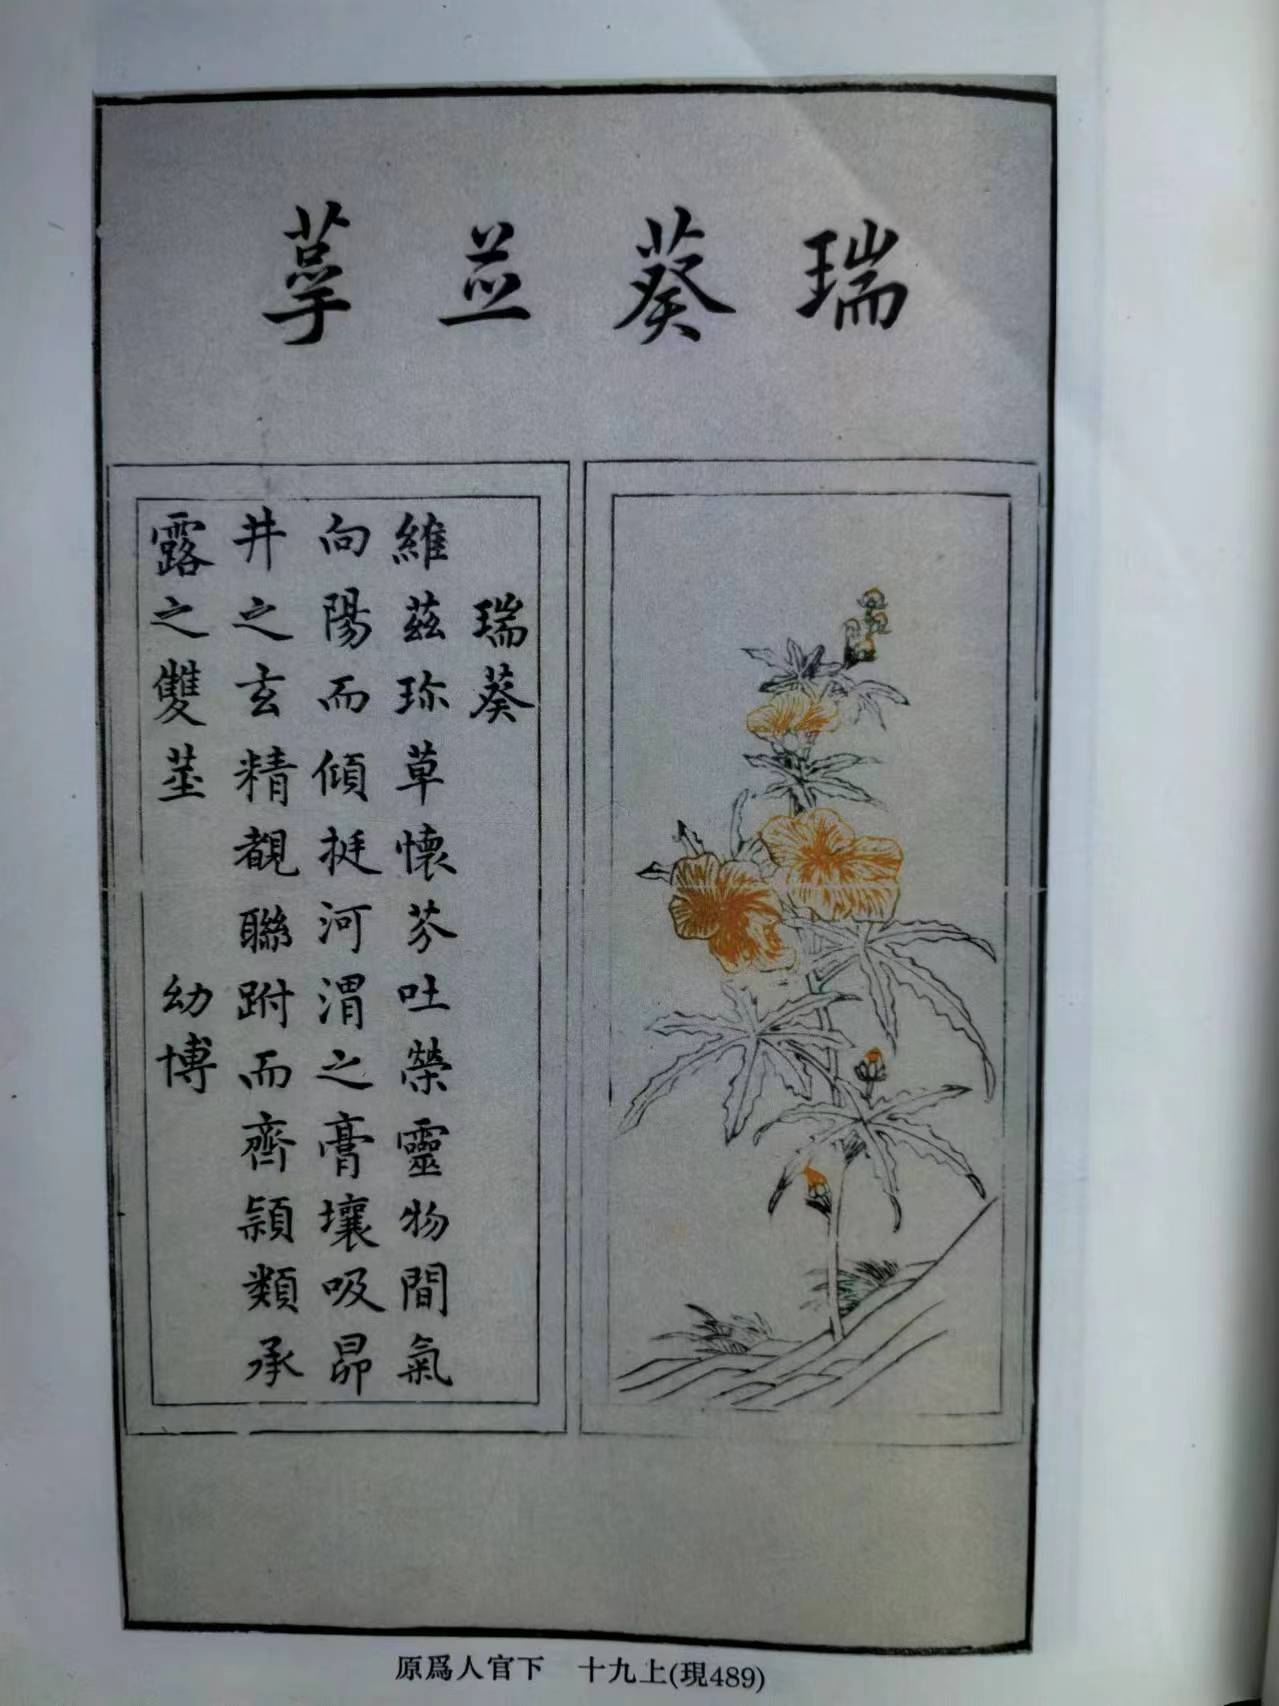 瑞葵並萼
瑞葵
維茲珎草懷芬吐榮靈物間氣
向陽而傾挺河渭之膏壤吸昴
井之玄精覩聯跗而齊頴類承
露之雙莖　幼博
原爲人官下　十九上(現489)